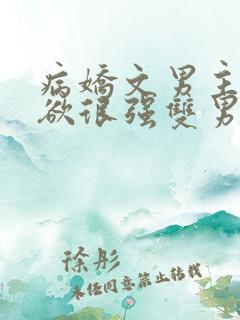 病嬌文男主
欲很强雙男
徐彤
未经同意禁止转载